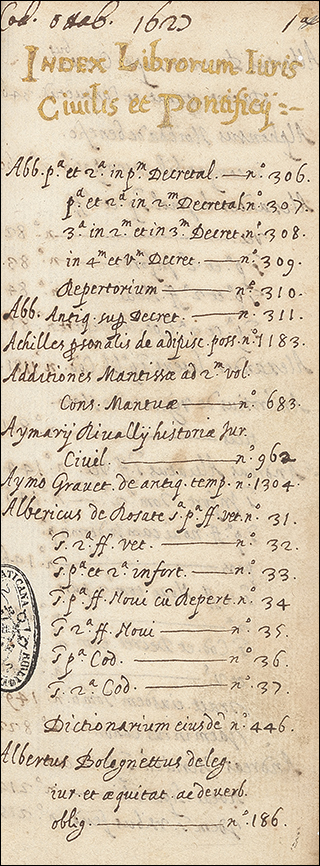 Cod. Ottob. 1623 1
INDEX Librorum Iuris
Ciuilis et Pontificij :~
Abb. pª et 2ª in pm Decretal. — nº. 306.
pª et 2ª in 2m Decretal. nº. 307.
3ª in 2m et in 3m Decret. nº. 308.
in 4m et vm Decret. — nº. 309.
Repertorium — nº. 310.
Abb. Antiq. sup Decret. — nº. 311.
Achilles psonalis de adipisc. poss. nº. 1183.
Additiones Mantissæ ad 2m vol.
Cons. Mantuæ — nº. 683.
Aymarij Riuallij historiæ Jur.
Ciuil. — nº. 962
Aymo Grauet. de antiq. temp. nº. 1304.
Albericus de Rosate s. pª ff. vet. nº. 31.
S. 2ª ff. vet. — nº. 32.
S. pª et 2ª infort. — nº. 33.
S. pª ff. Noui cũ Repert. nº. 34
S. 2ª ff. Noui — nº. 35.
S. pª Cod. — nº. 36.
S. 2ª Cod. — nº. 37.
Dictionarium eiusdẽ nº. 446.
Albertus Bolognettus de leg.
iur. et æquitat. ac de verb.
oblig. — nº. 186.